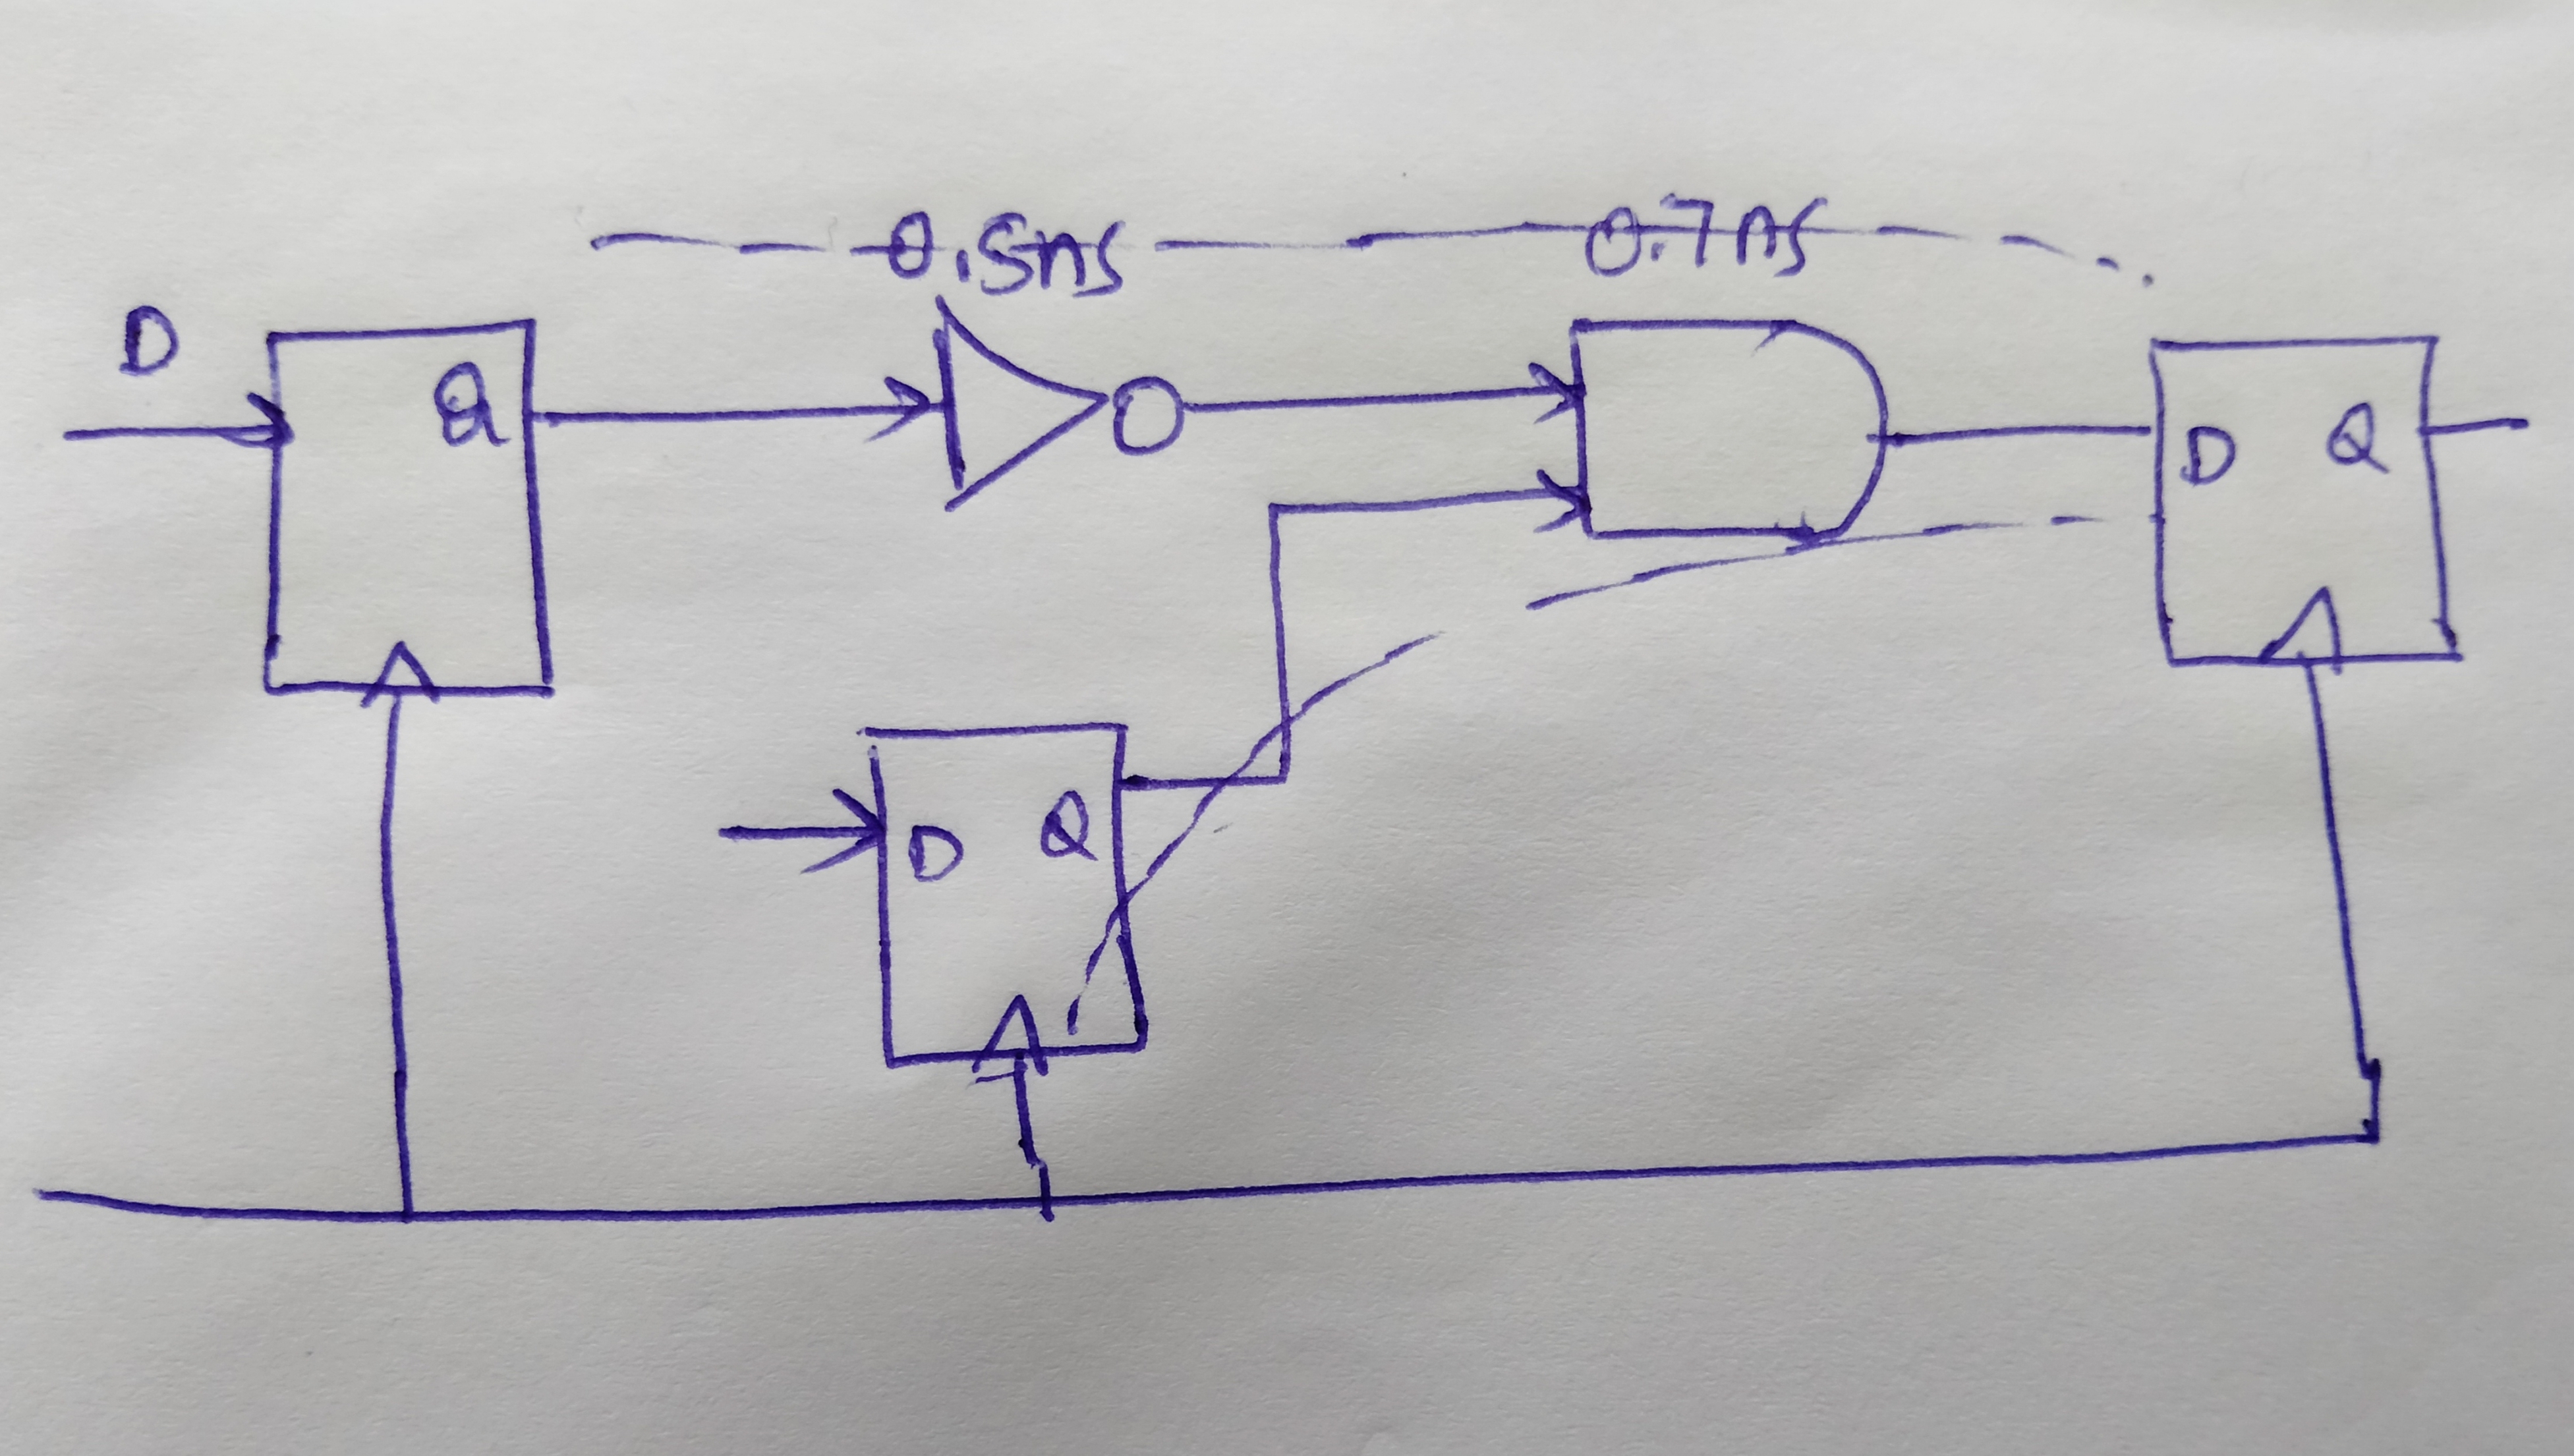 0.5ns 0.7ns
D
Q
D Q
D Q